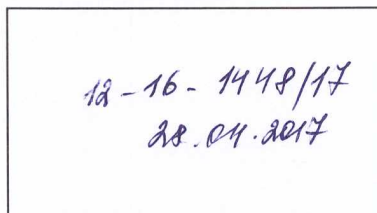 12-16-1448/17
28.04.2017